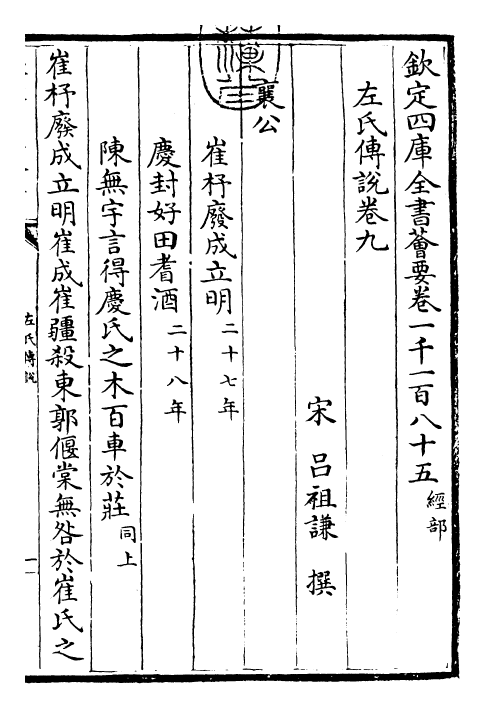 欽定四庫全書薈要卷一千一百八十五 經部
左氏傳說卷九
宋 呂祖謙 撰
襄公
崔杼廢成立明 二十七年
慶封好田耆酒 二十八年
陳無宇言得慶氏之木百車於莊 同上
崔杼廢成立明崔成崔疆殺東郭偃棠無咎於崔氏之
左氏傳說
一